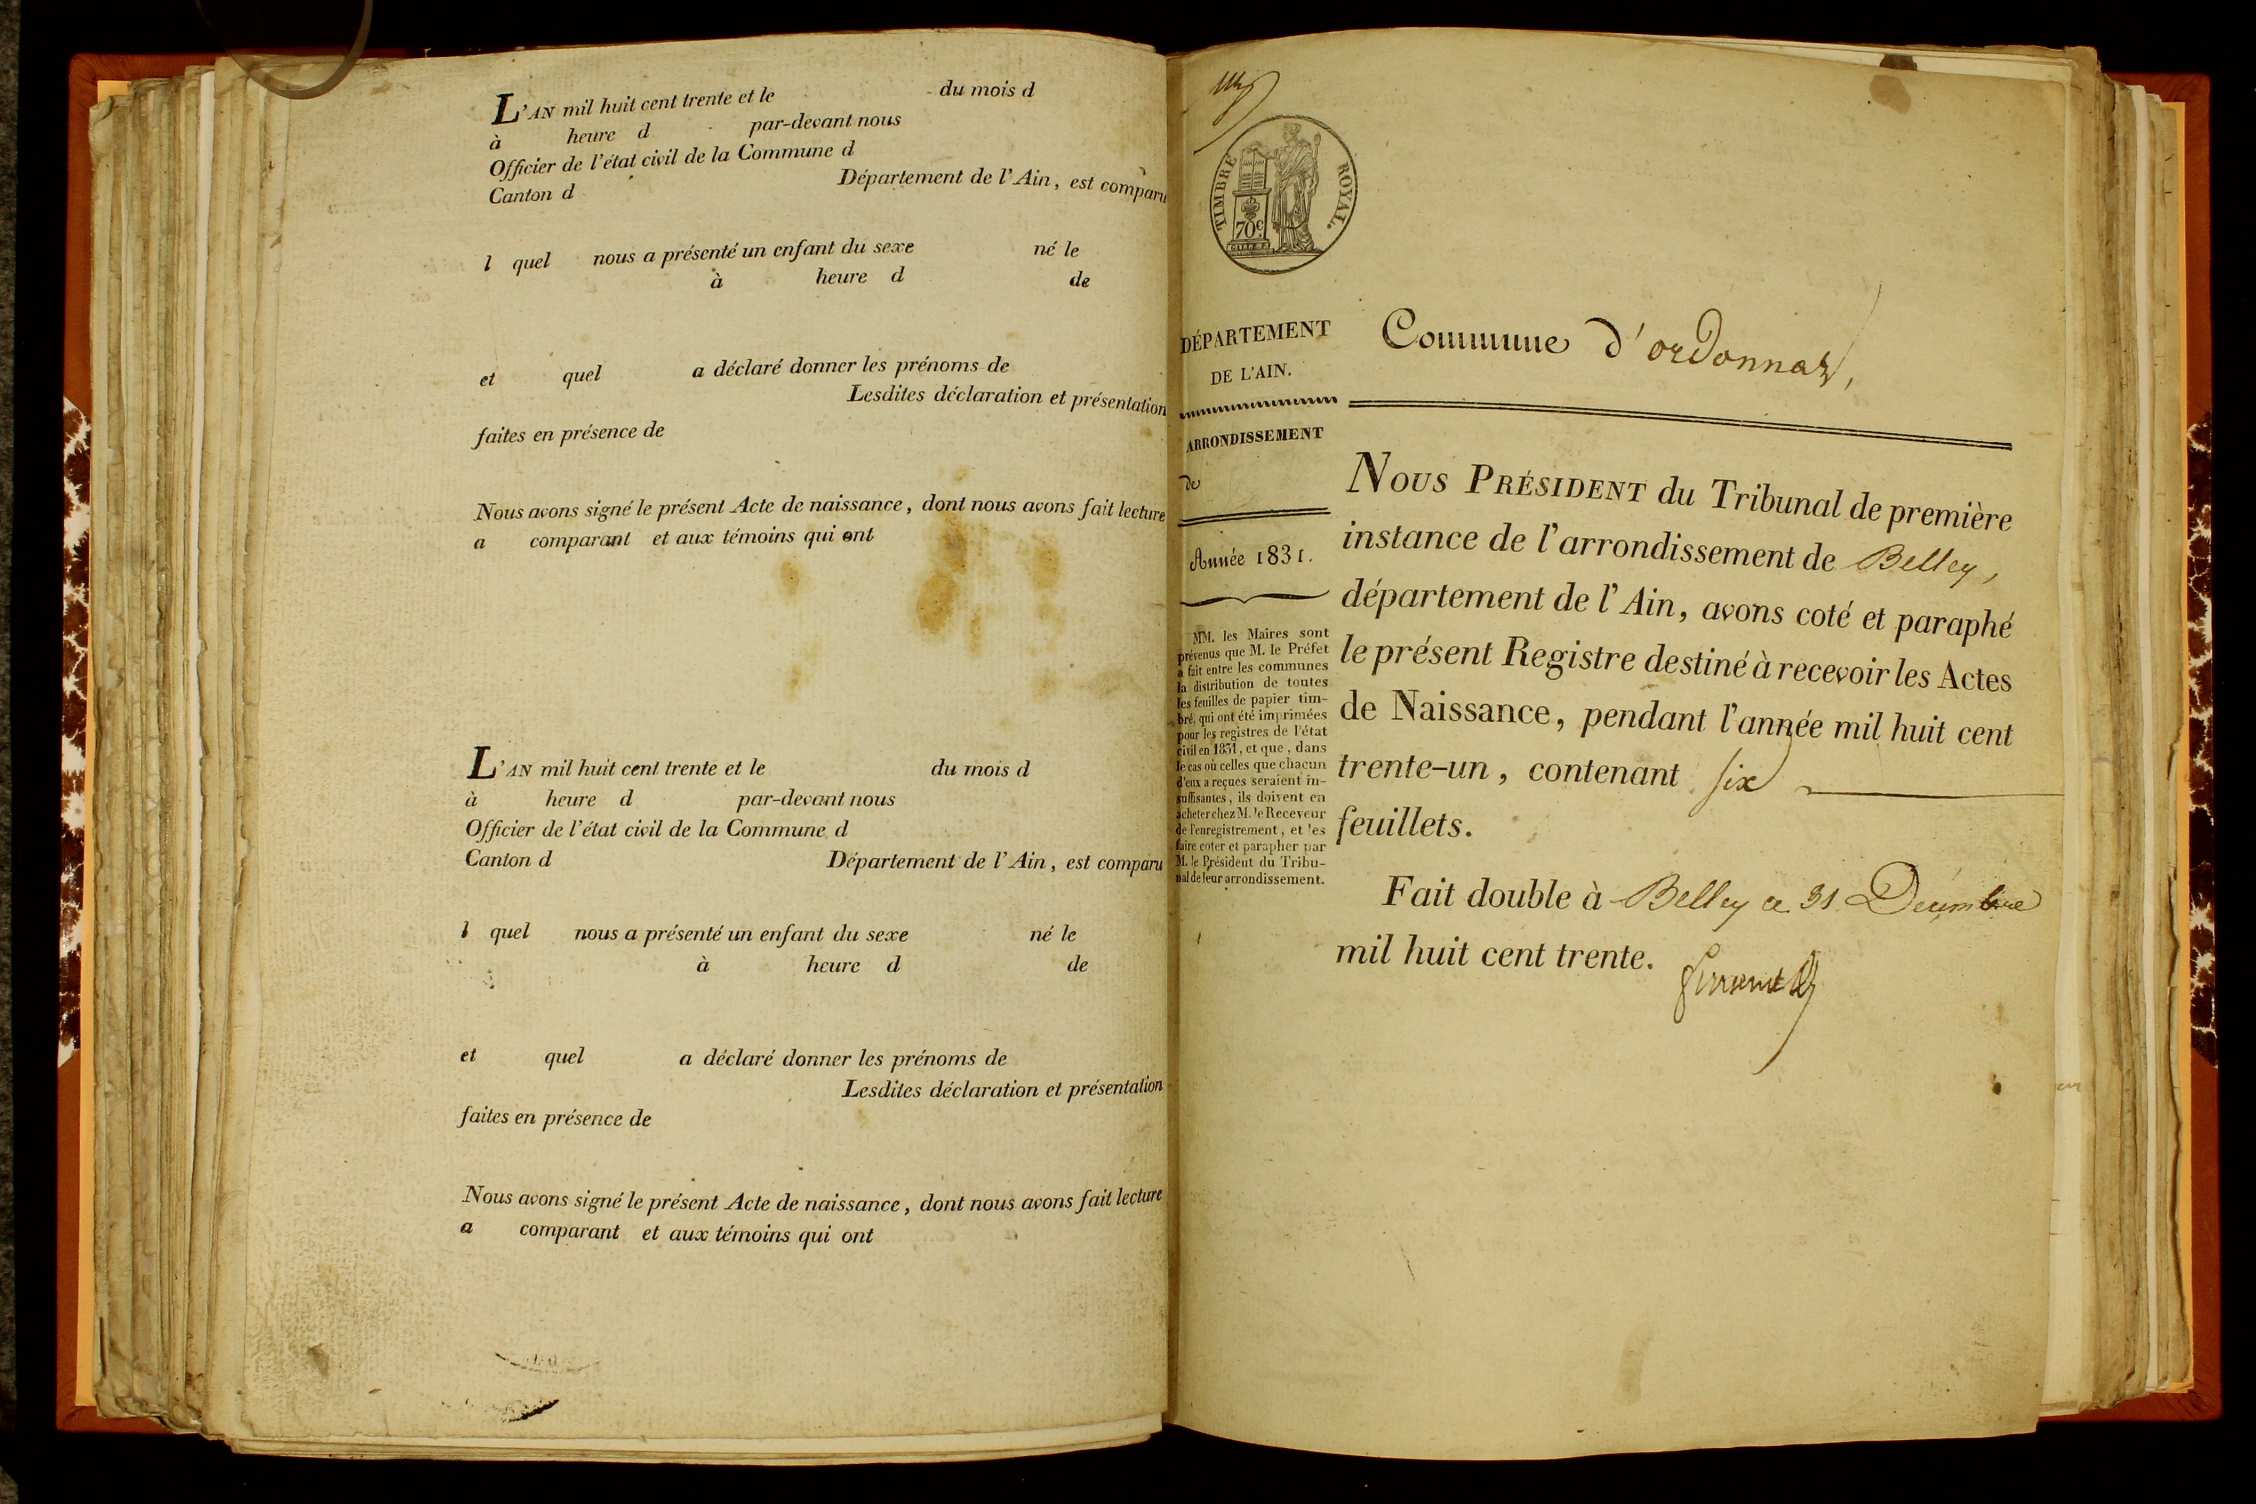 L'AN mil huit cent trente et le du mois d
à heure d par-devant nous
Officier de l'état civil de la Commune d
Canton d Département de l'Ain, est comparu
l quel nous a présenté un enfant du sexe né le
à heure d de
et quel a déclaré donner les prénoms de
Lesdites déclaration et présentation
faites en présence de
Nous avons signé le présent Acte de naissance, dont nous avons fait lecture
a comparant et aux témoins qui ont
L'AN mil huit cent trente et le du mois d
à heure d par-devant nous
Officier de l'état civil de la Commune d
Canton d Département de l'Ain, est comparu
l quel nous a présenté un enfant du sexe né le
à heure d de
et quel a déclaré donner les prénoms de
Lesdites déclaration et présentation
faites en présence de
Nous avons signé le présent Acte de naissance, dont nous avons fait lecture
a comparant et aux témoins qui ont
TIMBRE ROYAL.
70c
DÉPARTEMENT
DE L'AIN.
ARRONDISSEMENT
de
Année 1831.
MM. les Maires sont
prévenus que M. le Préfet
a fait entre les communes
la distribution de toutes
les feuilles de papier tim-
bré, qui ont été imprimées
pour les registres de l'état
civil en 1831, et que, dans
le cas où celles que chacun
d'eux a reçues seraient in-
suffisantes, ils doivent en
acheter chez M. le Receveur
de l'enregistrement, et les
faire coter et parapher par
M. le Président du Tribu-
nal de leur arrondissement.
Commune d'ordonnaz,
NOUS PRÉSIDENT du Tribunal de première
instance de l'arrondissement de Belley,
département de l'Ain, avons coté et paraphé
le présent Registre destiné à recevoir les Actes
de Naissance, pendant l'année mil huit cent
trente-un, contenant six
feuillets.
Fait double à Belley ce 31 Décembre
mil huit cent trente.